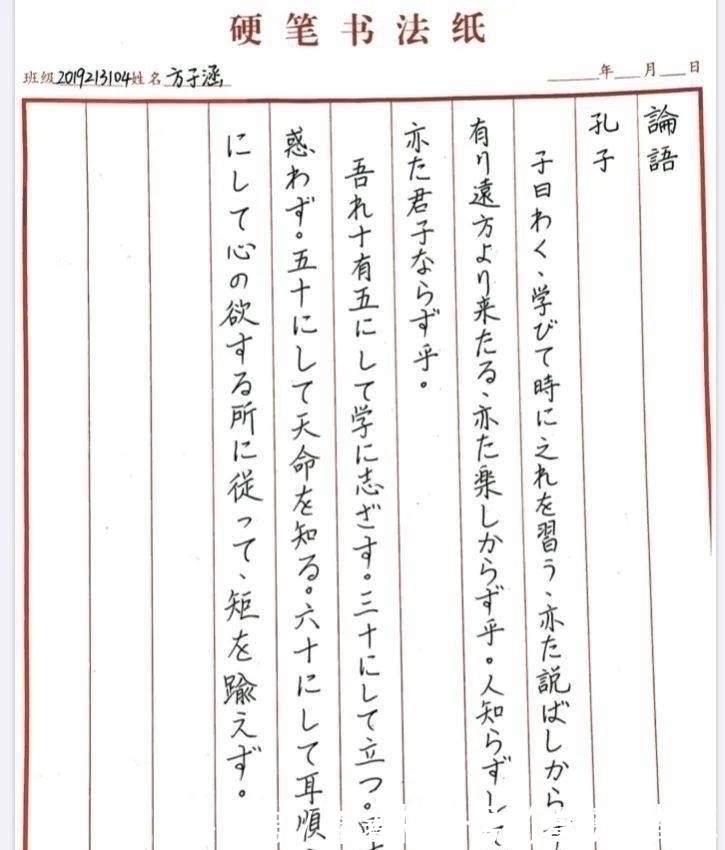 硬笔书法纸
班级 2019213104 姓名 方子涵 年 月 日
論語
孔子
子曰わく、学びて時に之れを習う、亦た説ばしから
有り遠方より来たる、亦た楽しからず乎。人知らずして
亦た君子ならず乎。
吾れ十有五にして学に志ざす。三十にして立つ。
惑わず。五十にして天命を知る。六十にして耳順
にして心の欲する所に従って、矩を踰えず。